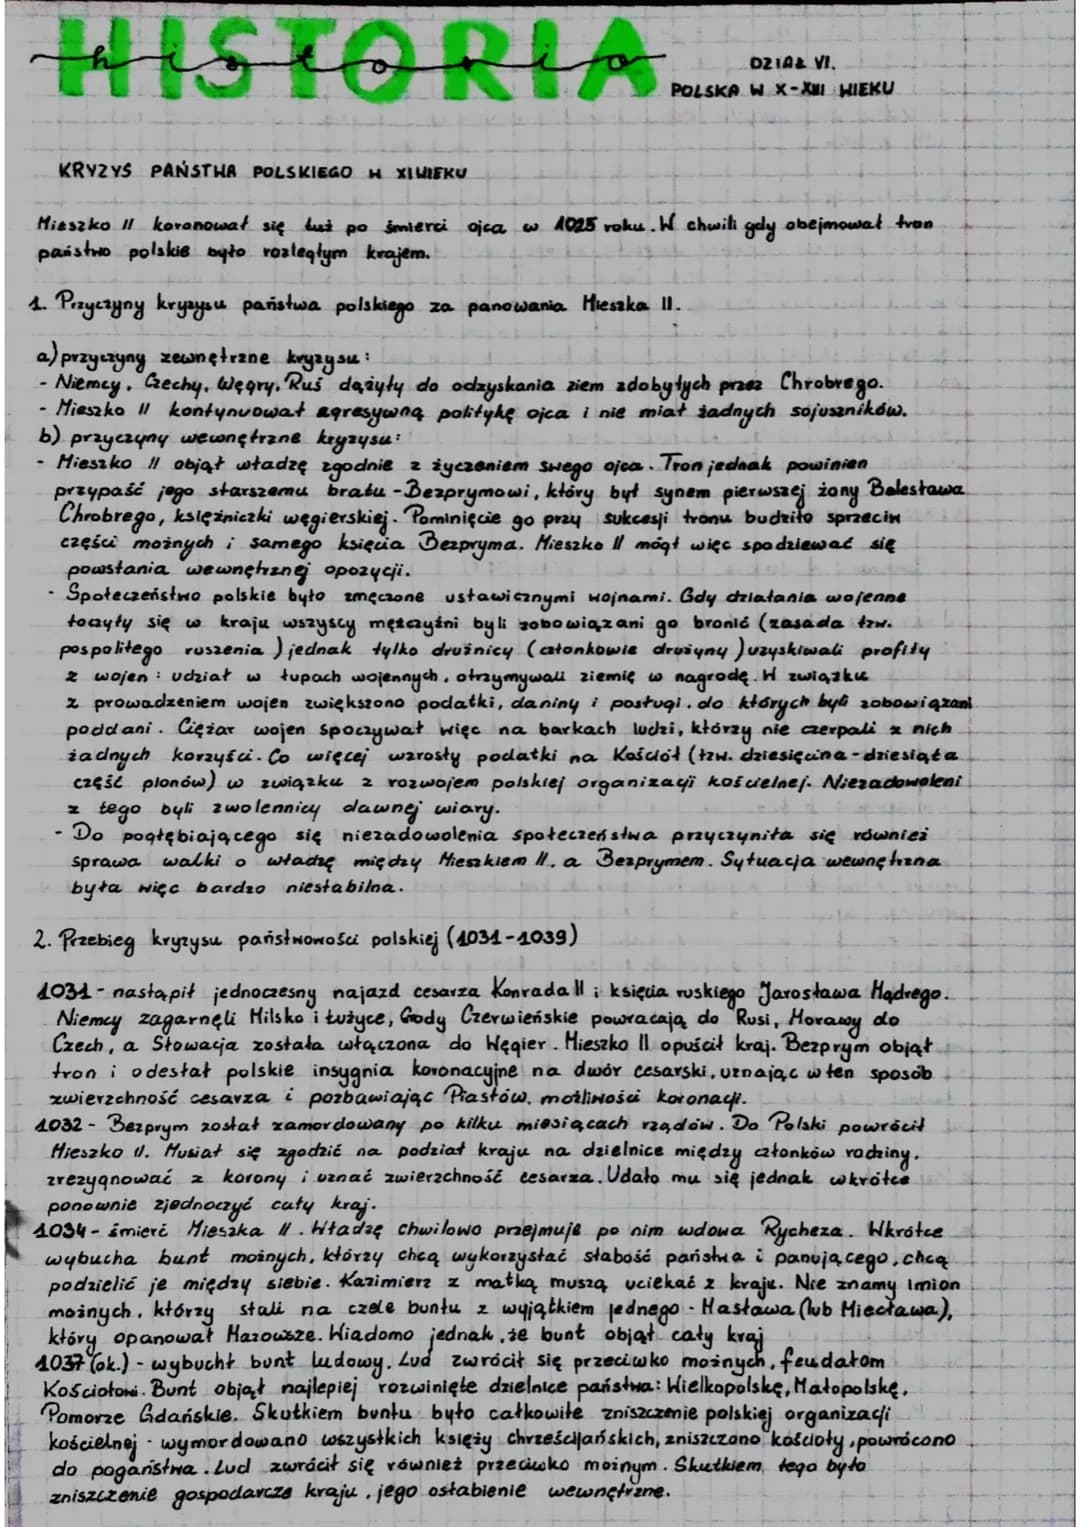 HISTORIA
historia
DZIAŁ VI.
POLSKA W X-XIII WIEKU
KRYZYS PAŃSTWA POLSKIEGO W XI WIEKU
Mieszko II koronował się tuż po śmierci ojca w 1025 roku. W chwili gdy obejmował tron
państwo polskie było rozległym krajem.
1. Przyczyny kryzysu państwa polskiego za panowania Mieszka II.
a) przyczyny zewnętrzne kryzysu:
- Niemcy, Czechy, Węgry, Ruś dążyły do odzyskania ziem zdobytych przez Chrobrego.
- Mieszko II kontynuował agresywną politykę ojca i nie miał żadnych sojuszników.
b) przyczyny wewnętrzne kryzysu:
- Mieszko II objął władzę zgodnie z życzeniem swego ojca. Tron jednak powinien
przypaść jego starszemu bratu - Bezprymowi, który był synem pierwszej żony Bolesława
Chrobrego, księżniczki węgierskiej. Pominięcie go przy sukcesji tronu budziło sprzeciw
części możnych i samego księcia Bezpryma. Mieszko II mógł więc spodziewać się
powstania wewnętrznej opozycji.
- Społeczeństwo polskie było zmęczone ustawicznymi wojnami. Gdy działania wojenne
toczyły się w kraju wszyscy mężczyźni byli zobowiązani go bronić (zasada tzw.
pospolitego ruszenia) jednak tylko drużnicy (członkowie drużyny) uzyskiwali profity
z wojen: udział w łupach wojennych, otrzymywali ziemię w nagrodę. W związku
z prowadzeniem wojen zwiększono podatki, daniny i posługi, do których byli zobowiązani
poddani. Ciężar wojen spoczywał więc na barkach ludzi, którzy nie czerpali z nich
żadnych korzyści. Co więcej wzrosły podatki na Kościół (tzw. dziesięcina - dziesiąta
część plonów) w związku z rozwojem polskiej organizacji kościelnej. Niezadowoleni
z tego byli zwolennicy dawnej wiary.
- Do pogłębiającego się niezadowolenia społeczeństwa przyczyniła się również
sprawa walki o władzę między Mieszkiem II, a Bezprymem. Sytuacja wewnętrzna
była więc bardzo niestabilna.
2. Przebieg kryzysu państwowości polskiej (1031-1039)
1031 - nastąpił jednoczesny najazd cesarza Konrada II i księcia ruskiego Jarosława Mądrego.
Niemcy zagarnęli Milsko i Łużyce, Grody Czerwieńskie powracają do Rusi, Morawy do
Czech, a Słowacja została włączona do Węgier. Mieszko II opuścił kraj. Bezprym objął
tron i odesłał polskie insygnia koronacyjne na dwór cesarski, uznając w ten sposób
zwierzchność cesarza i pozbawiając Piastów możliwości koronacji.
1032 - Bezprym został zamordowany po kilku miesiącach rządów. Do Polski powrócił
Mieszko II. Musiał się zgodzić na podział kraju na dzielnice między członków rodziny,
zrezygnować z korony i uznać zwierzchność cesarza. Udało mu się jednak wkrótce
ponownie zjednoczyć cały kraj.
1034 - śmierć Mieszka II. Władzę chwilowo przejmuje po nim wdowa Rycheza. Wkrótce
wybucha bunt możnych, którzy chcą wykorzystać słabość państwa i panującego, chcą
podzielić je między siebie. Kazimierz z matką muszą uciekać z kraju. Nie znamy imion
możnych, którzy stali na czele buntu z wyjątkiem jednego - Masława (lub Miecława),
który opanował Mazowsze. Wiadomo jednak, że bunt objął cały kraj
1037 (ok.) - wybuchł bunt ludowy. Lud zwrócił się przeciwko możnych, feudałom
Kościołowi. Bunt objął najlepiej rozwinięte dzielnice państwa: Wielkopolskę, Małopolskę,
Pomorze Gdańskie. Skutkiem buntu było całkowite zniszczenie polskiej organizacji
kościelnej - wymordowano wszystkich księży chrześcijańskich, zniszczono kościoły, powrócono
do pogaństwa. Lud zwrócił się również przeciwko możnym. Skutkiem tego było
zniszczenie gospodarcze kraju, jego osłabienie wewnętrzne.